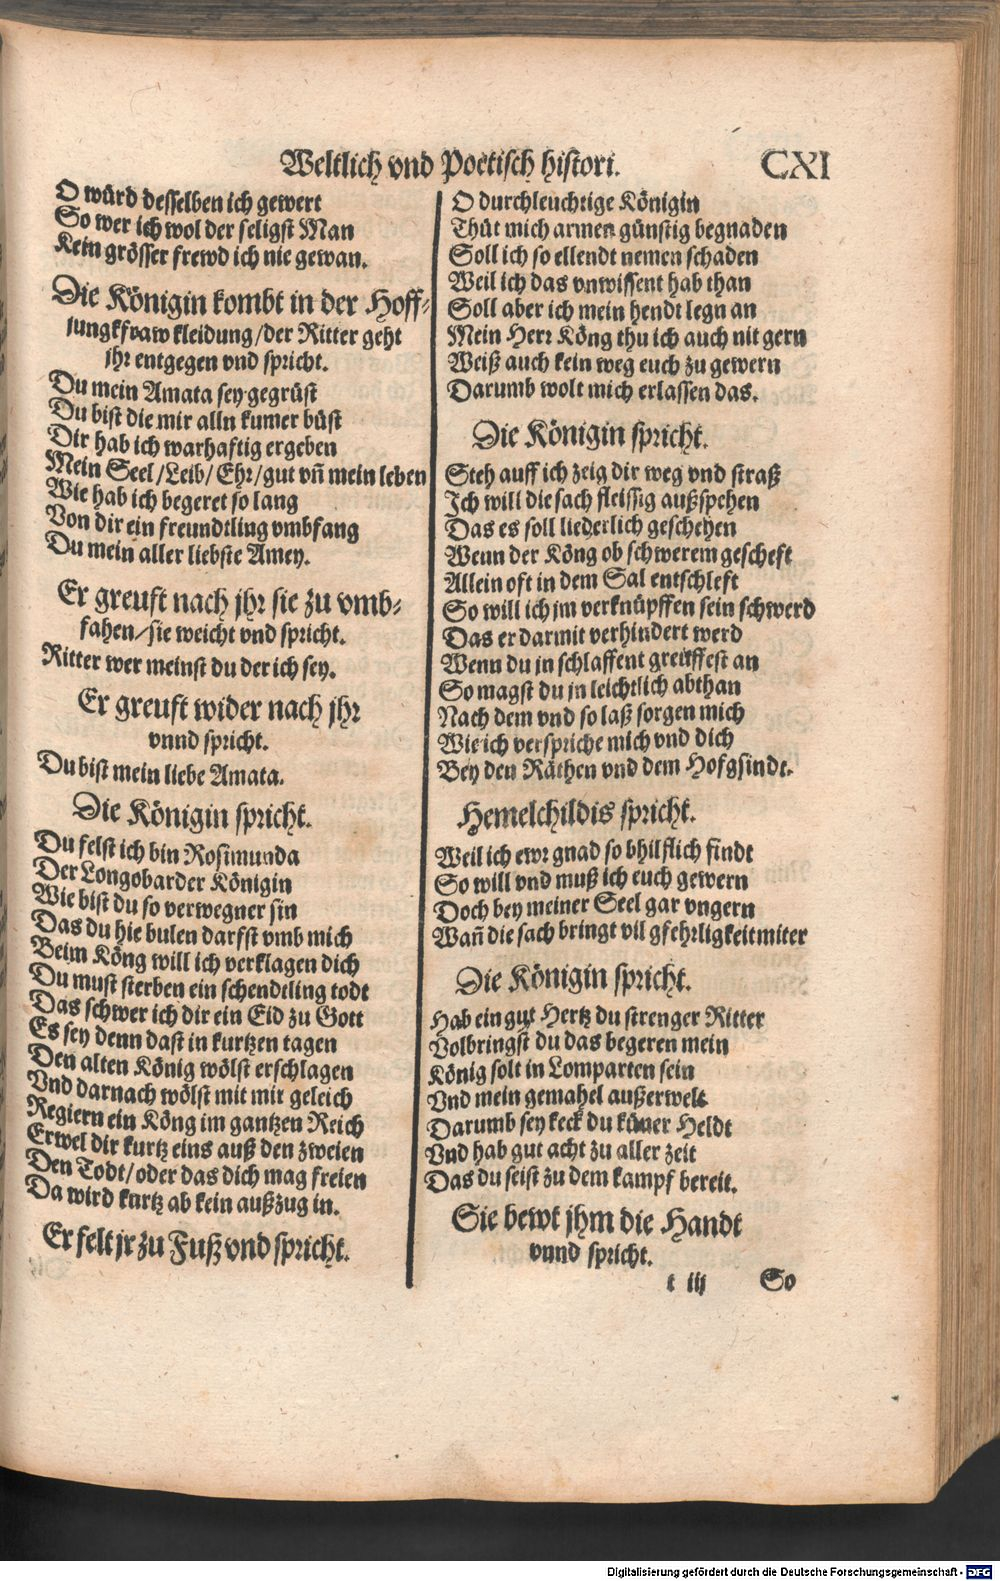 Weltlich vnd Poetisch histori. CXI
O würd desselben ich gewert
So wer ich wol der seligst Man
Kein grösser frewd ich nie gewan.
Die Königin kombt in der Hoff-
jungkfraw kleidung/der Ritter geht
jhr entgegen vnd spricht.
Du mein Amata sey gegrüst
Du bist die mir alln kumer büst
Dir hab ich warhaftig ergeben
Mein Seel/Leib/Ehr/gut vñ mein leben
Wie hab ich begeret so lang
Von dir ein freundtling vmbfang
Du mein aller liebste Amey.
Er greuft nach jhr sie zu vmb-
fahen/sie weicht vnd spricht.
Ritter wer meinst du der ich sey.
Er greuft wider nach jhr
vnnd spricht.
Du bist mein liebe Amata.
Die Königin spricht.
Du felst ich bin Rosimunda
Der Longobarder Königin
Wie bist du so verwegner sin
Das du hie bulen darfst vmb mich
Beim Köng will ich verklagen dich
Du must sterben ein schendtling todt
Das schwer ich dir ein Eid zu Gott
Es sey denn dast in kurtzen tagen
Den alten König wölst erschlagen
Vnd darnach wölst mit mir geleich
Regiern ein Köng im gantzen Reich
Erwel dir kurtz eins auß den zweien
Den Todt/oder das dich mag freien
Da wird kurtz ab kein außzug in.
Er felt jr zu Fuß vnd spricht.
O durchleuchtige Königin
Thüt mich armen günstig begnaden
Soll ich so ellendt nemen schaden
Weil ich das vnwissent hab than
Soll aber ich mein hendt legn an
Mein Herr Köng thu ich auch nit gern
Weiß auch kein weg euch zu gewern
Darumb wolt mich erlassen das.
Die Königin spricht.
Steh auff ich zeig dir weg vnd straß
Ich will die sach fleissig außspehen
Das es soll liederlich geschehen
Wenn der Köng ob schwerem gescheft
Allein oft in dem Sal entschleft
So will ich jm verknüpffen sein schwerd
Das er darmit verhindert werd
Wenn du jn schlaffent greüffest an
So magst du jn leichtlich abthan
Nach dem vnd so laß sorgen mich
Wie ich verspriche mich vnd dich
Bey den Räthen vnd dem Hofgsindt.
Hemelchildis spricht.
Weil ich ewr gnad so bhilflich findt
So will vnd muß ich euch gewern
Doch bey meiner Seel gar vngern
Wañ die sach bringt vil gfehrligkeit miter
Die Königin spricht.
Hab ein gut Hertz du strenger Ritter
Volbringst du das begeren mein
König solt in Lomparten sein
Vnd mein gemahel außerwelt
Darumb sey keck du küner Heldt
Vnd hab gut acht zu aller zeit
Das du seist zu dem kampf bereit.
Sie bewt jhm die Handt
vnnd spricht.
t iij So
Digitalisierung gefördert durch die Deutsche Forschungsgemeinschaft - DFG